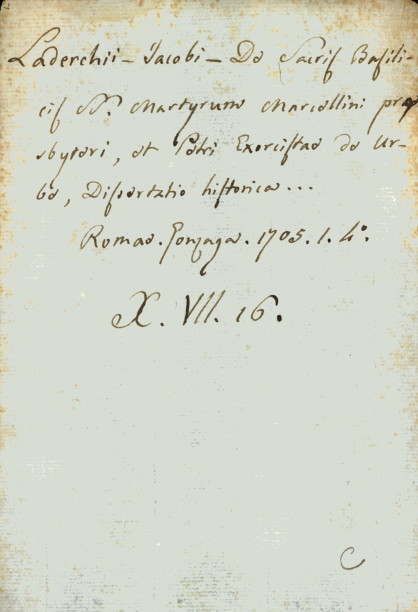 Laderchii - Jacobi - De Sacris Basili-
cis SS. Martyrum Marcellini pre
sbyteri, et Petri Exorcistae de Ur-
be, Dissertatio historica...
Romae. Gonzaga. 1705. 1. 4°.
X. VII. 16.
C